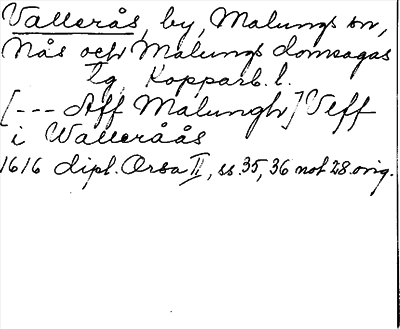 Vallerås, by, Malungs sn,
Nås och Malungs domsagas
tg, Kopparb. l.
[--- Aff Malungh] Veff
i Walleråås
1616 dipl. Orsa II, ss. 35, 36 not 28. orig.